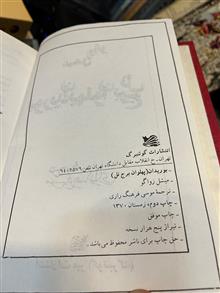 انتشارات گوتنبرگ
تهران ـ خ انقلاب مقابل دانشگاه تهران تلفن
ـ بوریدان(پهلوان برج نل)
ـ میشل زواگو
ـ ترجمهٔ موسی فرهنگ رازی
ـ چاپ دوم، زمستان ۱۳۷۰
ـ چاپ موفق
ـ تیراژ پنج هزار نسخه
ـ حق چاپ برای ناشر محفوظ می‌باشد.